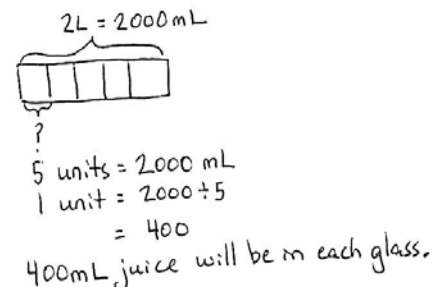 2L = 2000mL
?
5 units = 2000 mL
1 unit = 2000÷5
= 400
400mL juice will be in each glass.